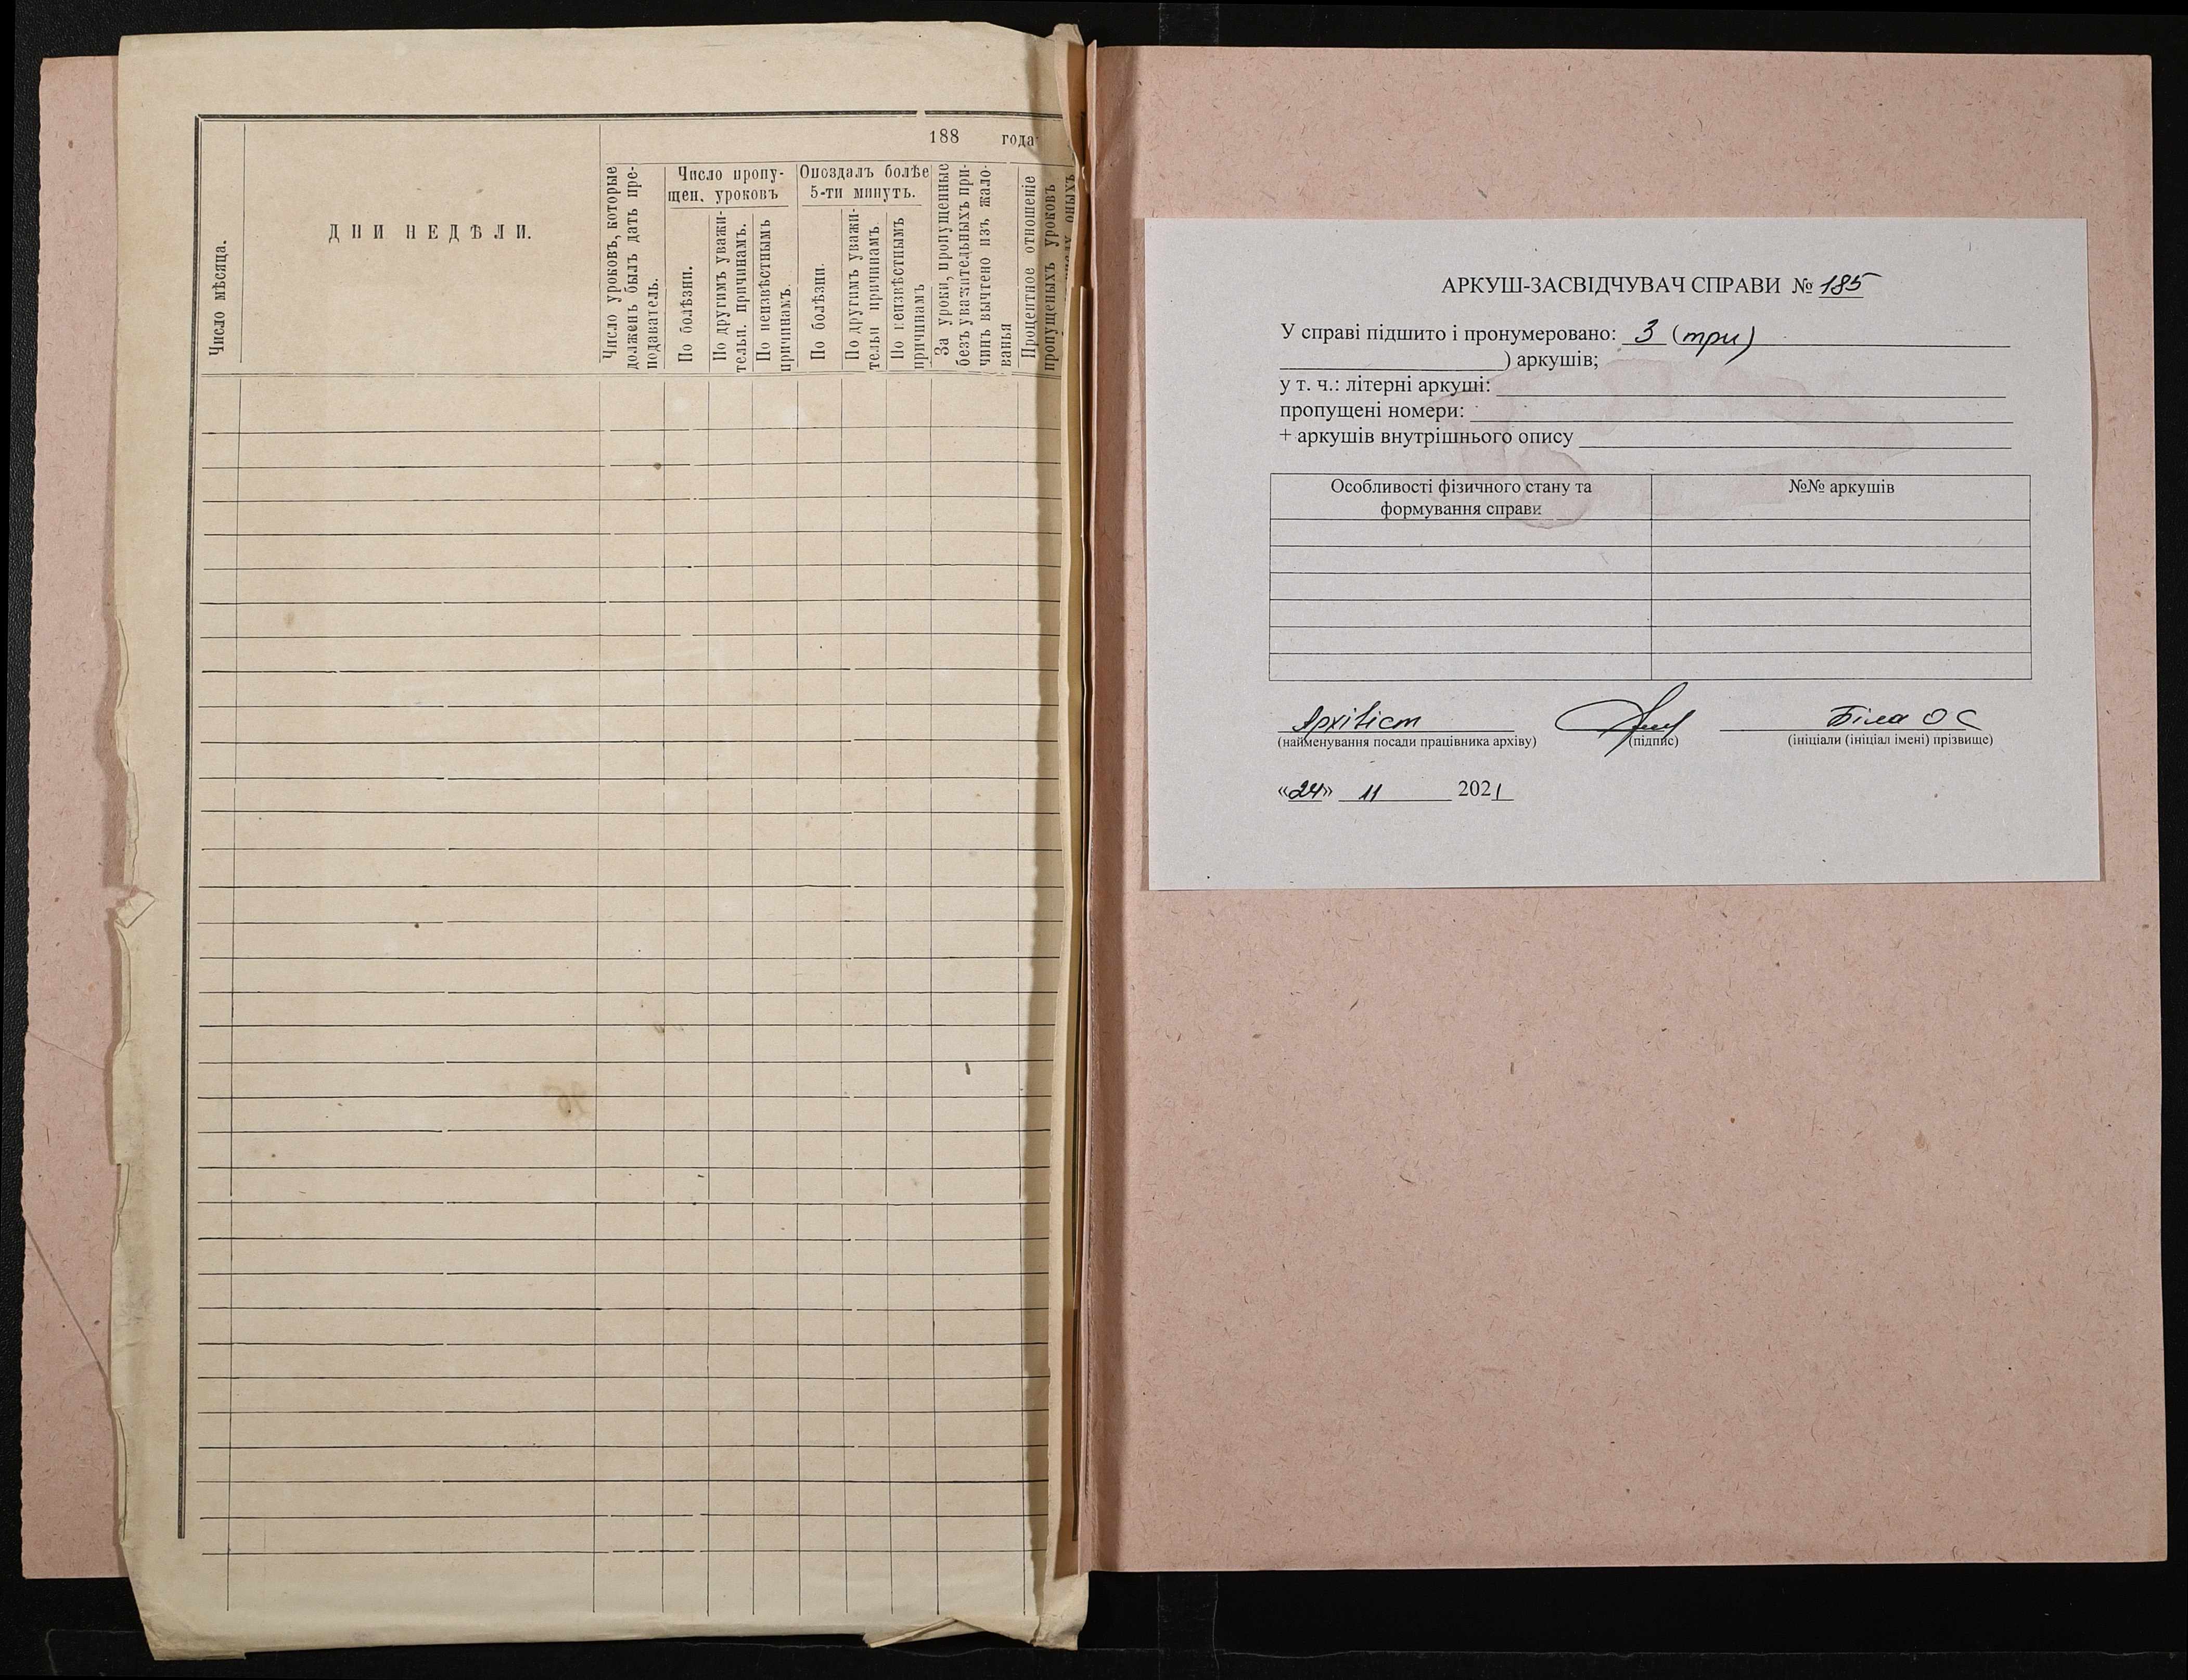 188 года
Число мѣсяца.
ДНИ НЕДѢЛИ.
Число уроковъ, которые
долженъ былъ дать пре-
подаватель.
Число пропу-
щен. уроковъ
По болѣзни.
По другимъ уважи-
тельн. причинамъ.
По неизвѣстнымъ
причинамъ.
Опоздалъ болѣе
5-ти минутъ.
По болѣзни.
По другимъ уважи-
тельн причинамъ.
По неизвѣстнымъ
причинамъ
За уроки, пропущенные
безъ уважительныхъ при-
чинъ вычтено изъ жало-
ванья
Процентное отношеніе
пропущеныхъ уроковъ
оныхъ
АРКУШ-ЗАСВІДЧУВАЧ СПРАВИ № 185
У справі підшито і пронумеровано: 3 (три)
) аркушів;
у т. ч.: літерні аркуші:
пропущені номери:
+ аркушів внутрішнього опису
Особливості фізичного стану та
формування справи
№№ аркушів
Архівіст Біла О С
(найменування посади працівника архіву) (підпис) (ініціали (ініціал імені) прізвище)
«24» 11 2021